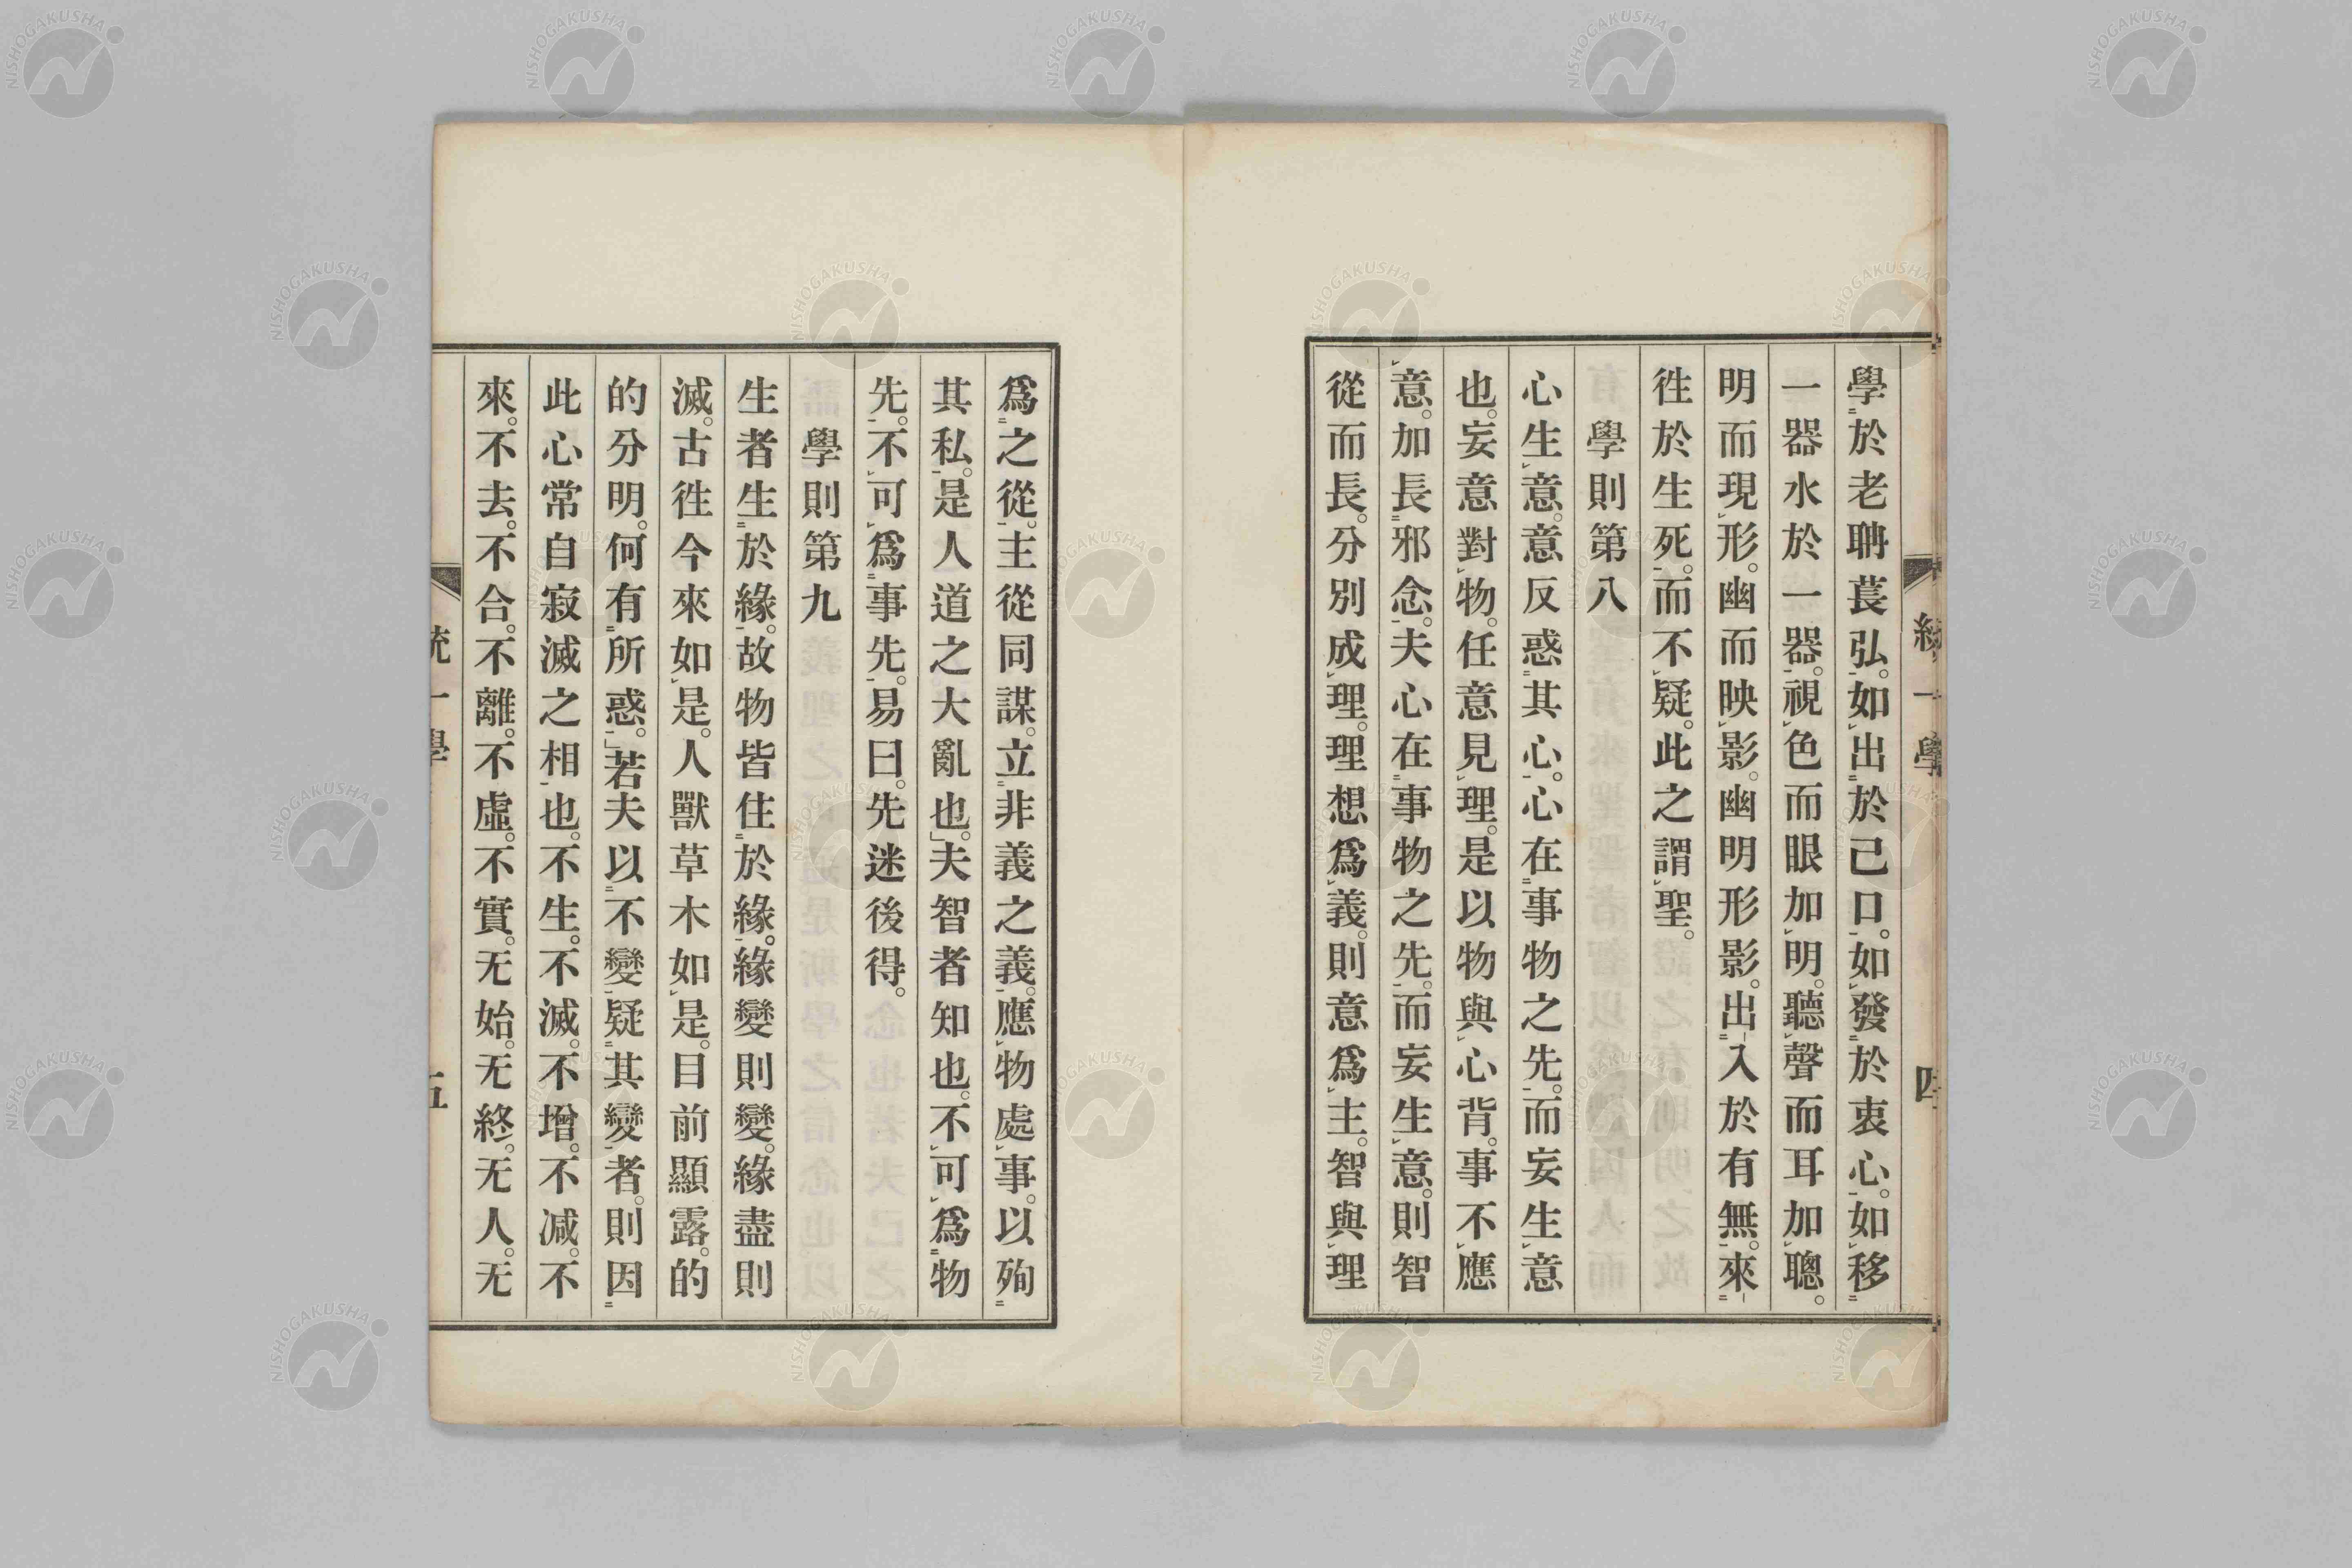 統一學 四
學於老聃萇弘。如出於己口。如發於衷心。如移
一器水於一器。視色而眼加明。聽聲而耳加聰。
明而現形。幽而映影。幽明形影。出入於有無。來
徃於生死。而不疑。此之謂聖。
學則第八
心生意。意反惑其心。心在事物之先。而妄生意
也。妄意對物。任意見理。是以物與心背。事不應
意。加長邪念。夫心在事物之先。而妄生意。則智
從而長。分別成理。理想爲義。則意爲主。智與理
爲之從。主從同謀。立非義之義。應物處事。以殉
其私。是人道之大亂也。」夫智者知也。不可爲物
先。不可爲事先。易曰。先迷後得。
學則第九
生者生於緣。故物皆住於緣。緣變則變。緣盡則
滅。古徃今來如是。人獸草木如是。目前顯露。的
的分明。何有所惑。」若夫以不變疑其變者。則因
此心常自寂滅之相也。不生。不滅。不增。不減。不
來。不去。不合。不離。不虛。不實。无始。无終。无人。无
統一學 五
NISHOGAKUSHA